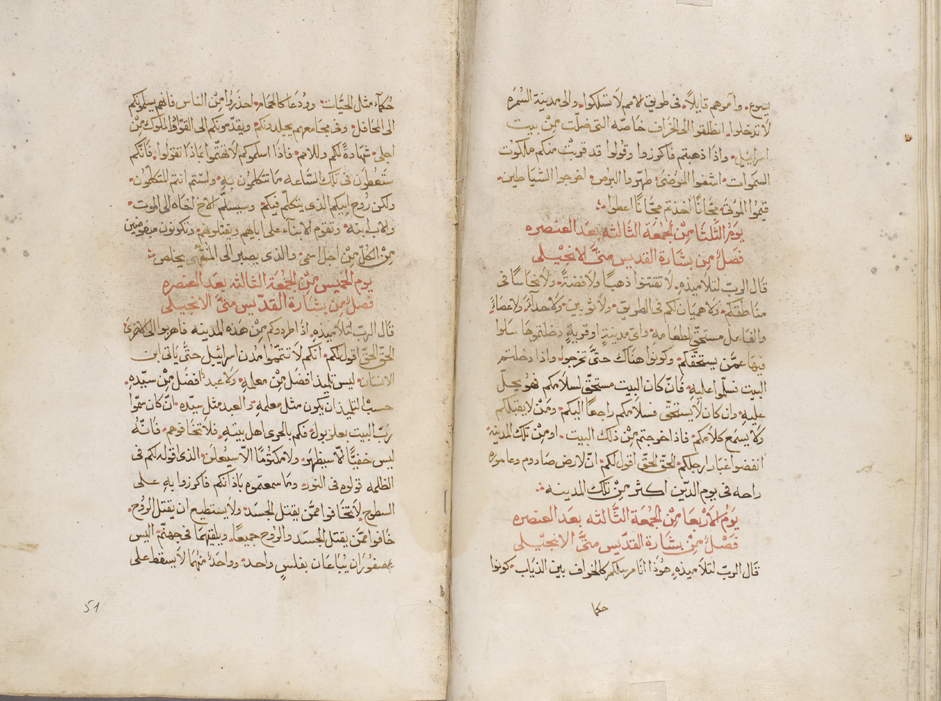 يسوع. وامرهم قايلاً. فى طريق الامم لا تسلكوا. والى مدينة السمره
لا تدخلوا. انطلقوا الى الخراف خاصّه التى ضلت من بيت
اسراييل. واذا ذهبتم فاكرزوا وقولوا قد قربت منكم ملكوت
السموات. اشفوا المرضى. طهروا البرص. اخرجوا الشياطين.
قيموا الموتى. مجّانًا اخذتم مجّانًا اعطوا.
يوم الثلثا من الجمعة الثالثه بعد العنصره
فصل من بشارة القديس متى الانجيلى
قال الرب لتلاميذه. لا تقتنوا ذهبًا ولا فضةً. ولا نحاسًا فى
مناطقكم. ولا هميان لكم فى الطريق. ولا ثوبين. ولا حذاء. ولا عصاء.
والفاعل مستحق لطعامه. واى مدينةٍ او قريةٍ دخلتموها سلوا
فيها عمّن يستحقكم. وكونوا هناك حتّى تخرجوا. واذا دخلتم
البيت سلّموا عليه. فانّ كان البيت مستحقّ لسلامكم فهو يحلّ
عليه. وان كان لا يستحقّ. فسلامكم راجعًا اليكم. ومن لا يقبلكم
ولا يسمع كلامكم. فاذا خرجتم من ذلك البيت. او من تلك المدينه
انفضوا غبار ارجلكم. الحقّ الحقّ اقول لكم. انّ لارض صادوم وعاموره
راحه فى يوم الدّين اكثر من تلك المدينه.
يوم الاربعا من الجمعة الثّالثه بعد العنصره
فصلٌ من بشارة القدّيس متىّ الانجيلى
قال الربّ لتلاميذه. هوذا انا مرسلكم كالخراف بين الذياب. كونوا
حكا
حكمآء مثل الحيّات. وودعا كالحمام. احذروا من الناس فانهم يسلمونكم
الى المحافل. وفى مجامعهم يجلدونكم. ويقدّمونكم الى القوّاد والملوك من
اجلى. شهادةً لكم وللامم. فاذا اسلموكم لا تهتمّوا بماذا تقولوا. فانّكم
ستعطون فى تلك السّاعه ما تتكلمون به. ولستم انتم المتكلمون.
ولكن روح ابيكم الذى يتكلّم فيكم. وسيسلّم الاخ اخاه الى الموت.
والاب ابنه. وتقوم الابناء على ابايهم ويقتلوهم. وتكونون مبغوضين
من الكلّ من اجل اسمى. والذى يصبر الى المنتهى يخلص.
يوم الخميس من الجمعة الثالثة بعد العنصره
فصل من بشارة القدّيس متىّ الانجيلى
قال الربّ لتلاميذه. اذا طردوكم من هذه المدينه. فاهربوا الى الاخرى
الحقّ الحقّ اقول لكم. انكم لا تتمّوا مدن اسراييل حتّى ياتى ابن
الانسان. ليس تلميذ افضل من معلمه. ولا عبد افضل من سيّده.
حسب التلميذ ان يكون مثل معلمه. والعبد مثل سيّده. ان كان سمّوا
ربّ البيت بعلزبول. فكم بالحرى اهل بيته. فلا تخافوهم. فانّه
ليس خفيّاً الا سيظهر. ولا مكتومًا الا سيعلن. الذى اقوله لكم فى
الظلمه قولوه فى النور. وما سمعتموه باذانكم فاكرزوا به على
السطوح. لا تخافوا ممّن يقتل الجسد. ولا يستطيع ان يقتل الروح.
خافوا ممّن يقتل الجسد والروح جميعًا. ويلقيهما فى جهنّم. اليس
عصفوران يُباعان بفلسٍ واحد. وواحدٌ منهما لا يسقط على
51